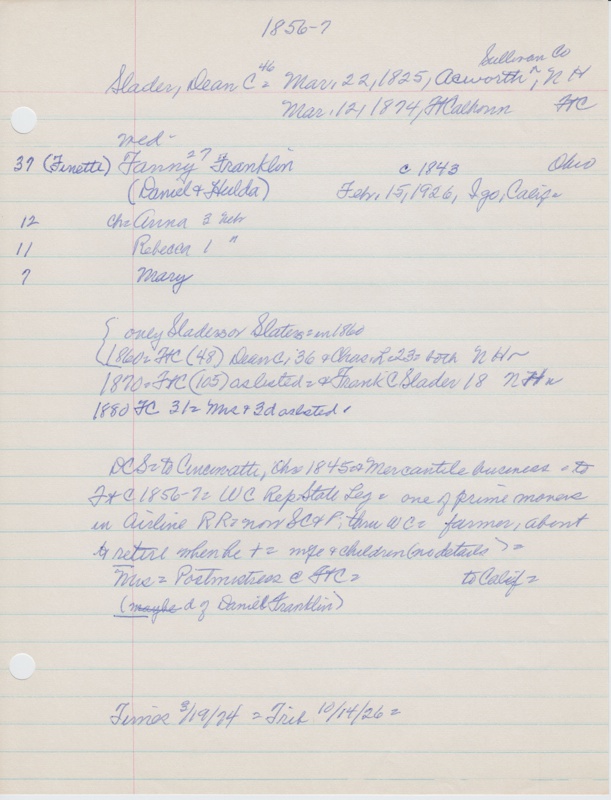 1856-7
Sullivan Co
Slader, Dean C 46 = Mar, 22, 1825, Acworth ", N H
Mar, 12, 1874, Ft Calhoun FtC
wed-
37 (Finette) Fanny 27 Franklin c 1843 Ohio
(Daniel & Hulda) Febr, 15, 1926, Igo, Calif =
12 ch = Anna 3 Nebr
11 Rebecca 1 "
7 Mary
{ only Sladers or Slaters = in 1860
1860 = FtC (48) Dean C, 36 & Chas. L = 23 = both N H ~
1870 = FtC (105) as listed = & Frank C Slader 18 N H
1880 FC 31 = Mrs & 3 d as listed
DCS = to Cincinnatti, Ohio 1845 = Mercantile business = to
Ft C 1856-7 = WC Rep State Leg = one of prime movers
in Airline RR = now SC & P, thru WC = farmer, about
to retire when he + = wife & children (no details) =
Mrs = Postmistress @ FtC = to Calif =
(maybe d of Daniel Franklin)
Times 3/19/74 = Trib 10/14/26 =